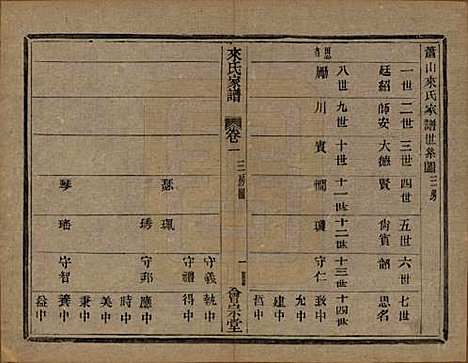 蕭山來氏家譜世系圖 三房
一世 二世 三世 四世 五世 六世 七世
廷紹 師安 大德 賢 尙賓 韶 思名
八世 九世 十世 十一世 十二世 十三世 十四世
勵 川 賓 憪 璣 守仁 致中
允中
建中
來氏家譜 卷一 三房圖 一 會宗堂
守義 執中
瑟 珮 守禮 得中
琇 守邦 塵中
時中
美中
秉中
琴 璠 守智 養中
益中